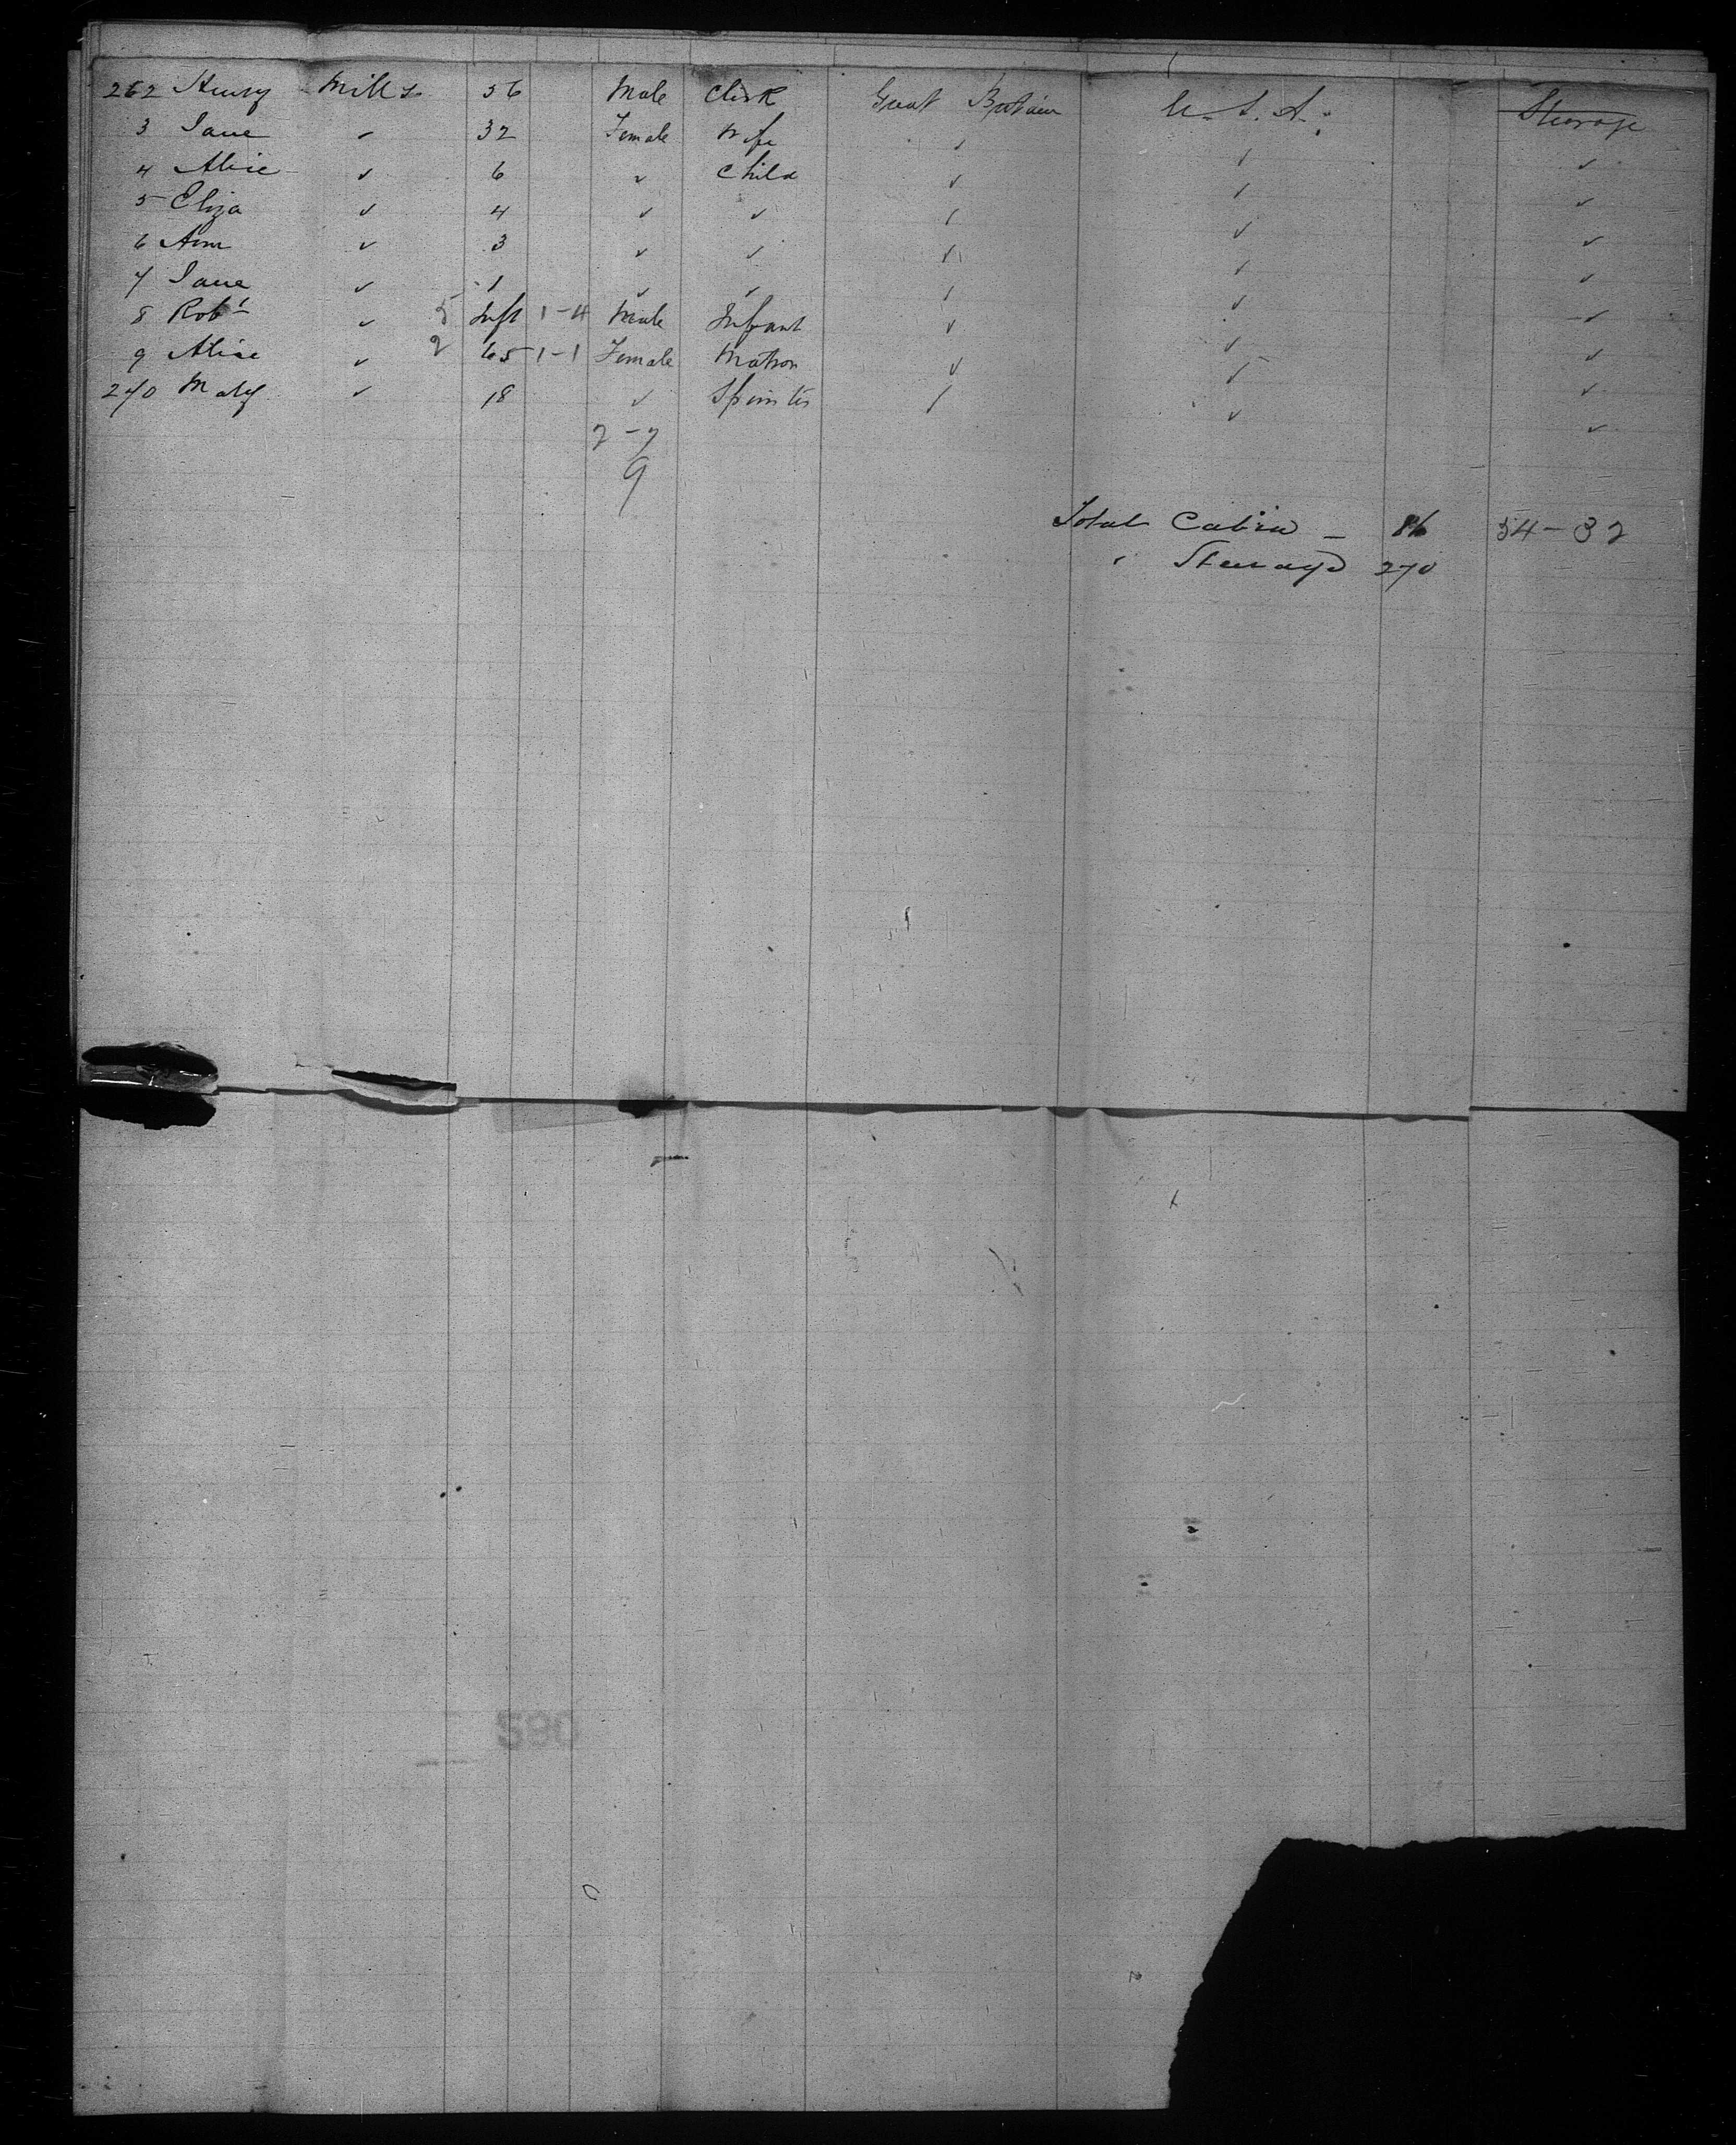 262 Henry Mills 36 Male Clerk Great Britain U.S.A. Steerage
3 Jane " 32 Female Wife " " "
4 Alice " 6 " Child " " "
5 Eliza " 4 " " " " "
6 Ann " 3 " " " " "
7 Jane " 1 " " " " "
8 Robt " 5 Inft 1-4 Male Infant " " "
9 Alice " 2 65 1-1 Female Matron " " "
270 Mary " 18 " Spinster " " "
2-7
9
Total Cabin - 86 54-32
" Steerage 270
590